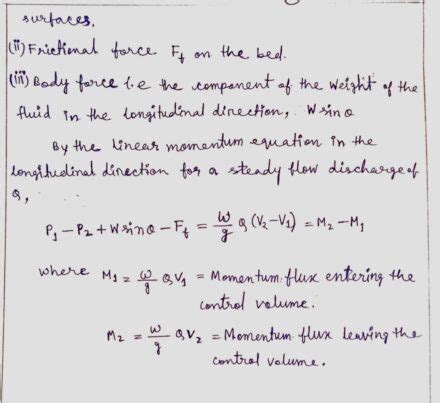 surfaces.
(ii) Frictional force F_f on the bed.
(iii) Body force i.e the component of the weight of the
fluid in the longitudinal direction, W sin θ
By the linear momentum equation in the
longitudinal direction for a steady flow discharge of
Q,
P₁ – P₂ + W sin θ – F_f = w/g Q (V₂ – V₁) = M₂ – M₁
where M₁ = w/g QV₁ = Momentum flux entering the
control volume.
M₂ = w/g QV₂ = Momentum flux leaving the
control volume.